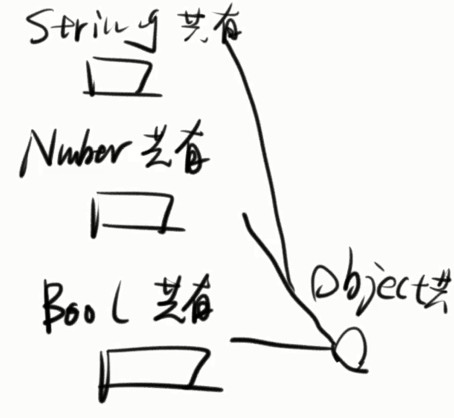 String 共有
Number 共有
Bool 共有
Object共